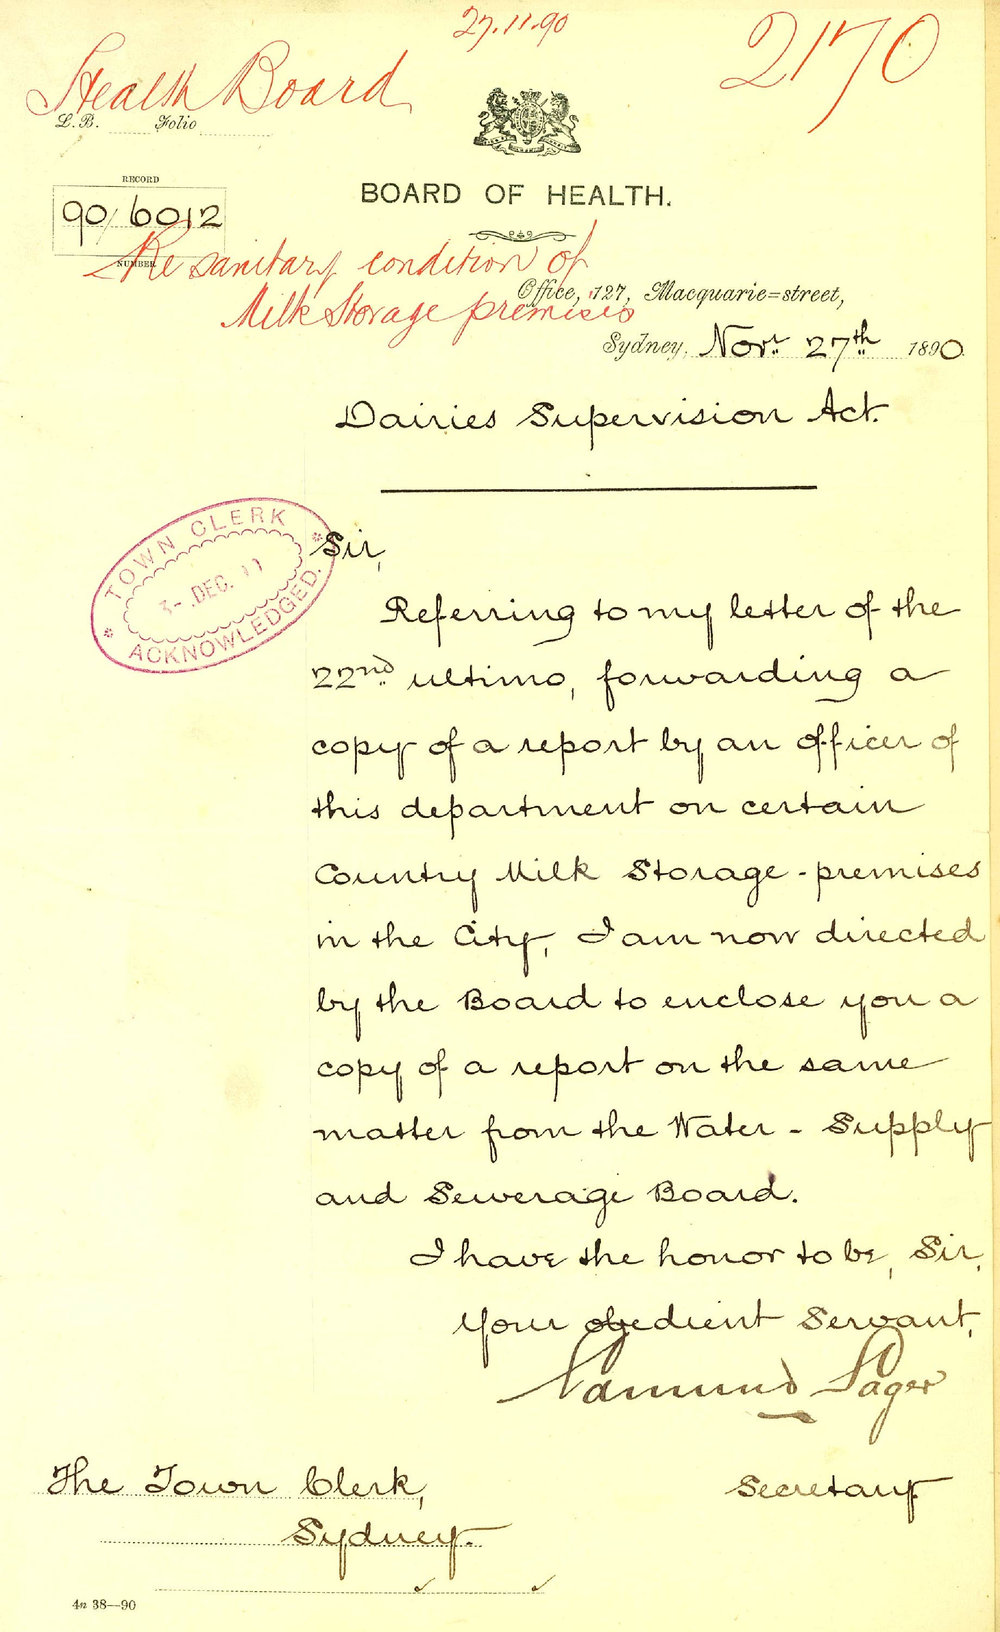 27.11.90
2170
Health Board
L. B. Folio
RECORD
90/6012
NUMBER
BOARD OF HEALTH.
Re sanitary condition of
Milk Storage premises
Office, 127, Macquarie=street,
Sydney, Novr. 27th 1890.
Dairies Supervision Act.
TOWN CLERK
3- DEC.
ACKNOWLEDGED.
Sir,
Referring to my letter of the
22nd ultimo, forwarding a
copy of a report by an officer of
this department on certain
Country Milk Storage-premises
in the City, I am now directed
by the Board to enclose you a
copy of a report on the same
matter from the Water-Supply
and Sewerage Board.
I have the honor to be, Sir,
Your obedient Servant,
Edmund Sager
Secretary
The Town Clerk,
Sydney.
4a 38—90